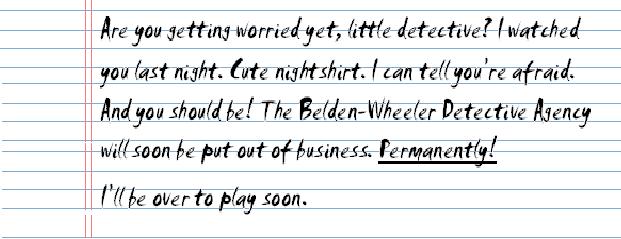 Are you getting worried yet, little detective? I watched
you last night. Cute nightshirt. I can tell you're afraid.
And you should be! The Belden-Wheeler Detective Agency
will soon be put out of business. Permanently!
I'll be over to play soon.